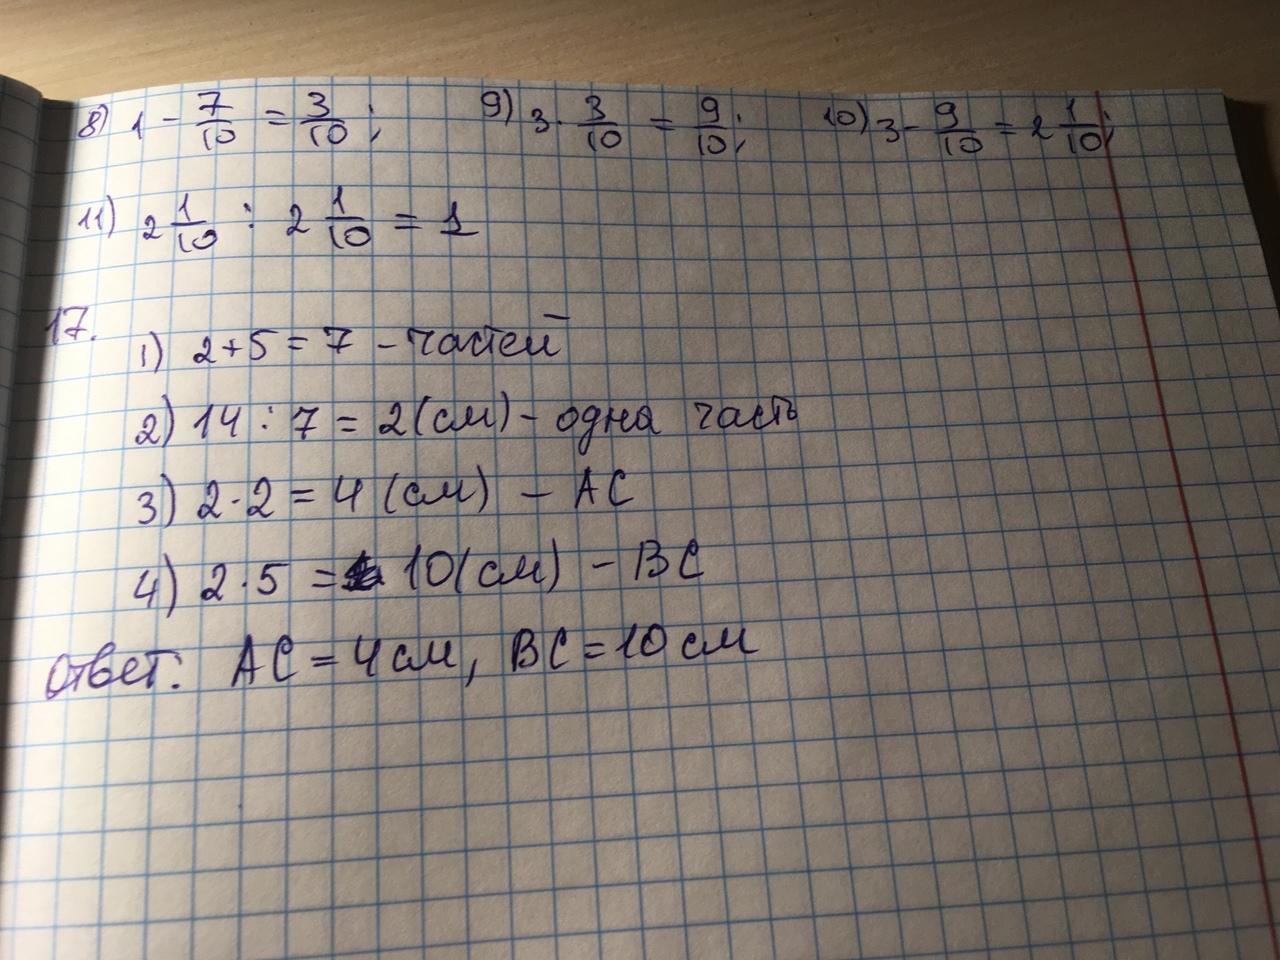 8) 1 - 7/10 = 3/10; 9) 3 · 3/10 = 9/10; 10) 3 - 9/10 = 2 1/10;
11) 2 1/10 : 2 1/10 = 1
17.
1) 2+5=7 - частей
2) 14 : 7 = 2(см) - одна часть
3) 2·2=4 (см) - AC
4) 2·5 = 10(см) - BC
Ответ: AC=4см, BC=10см